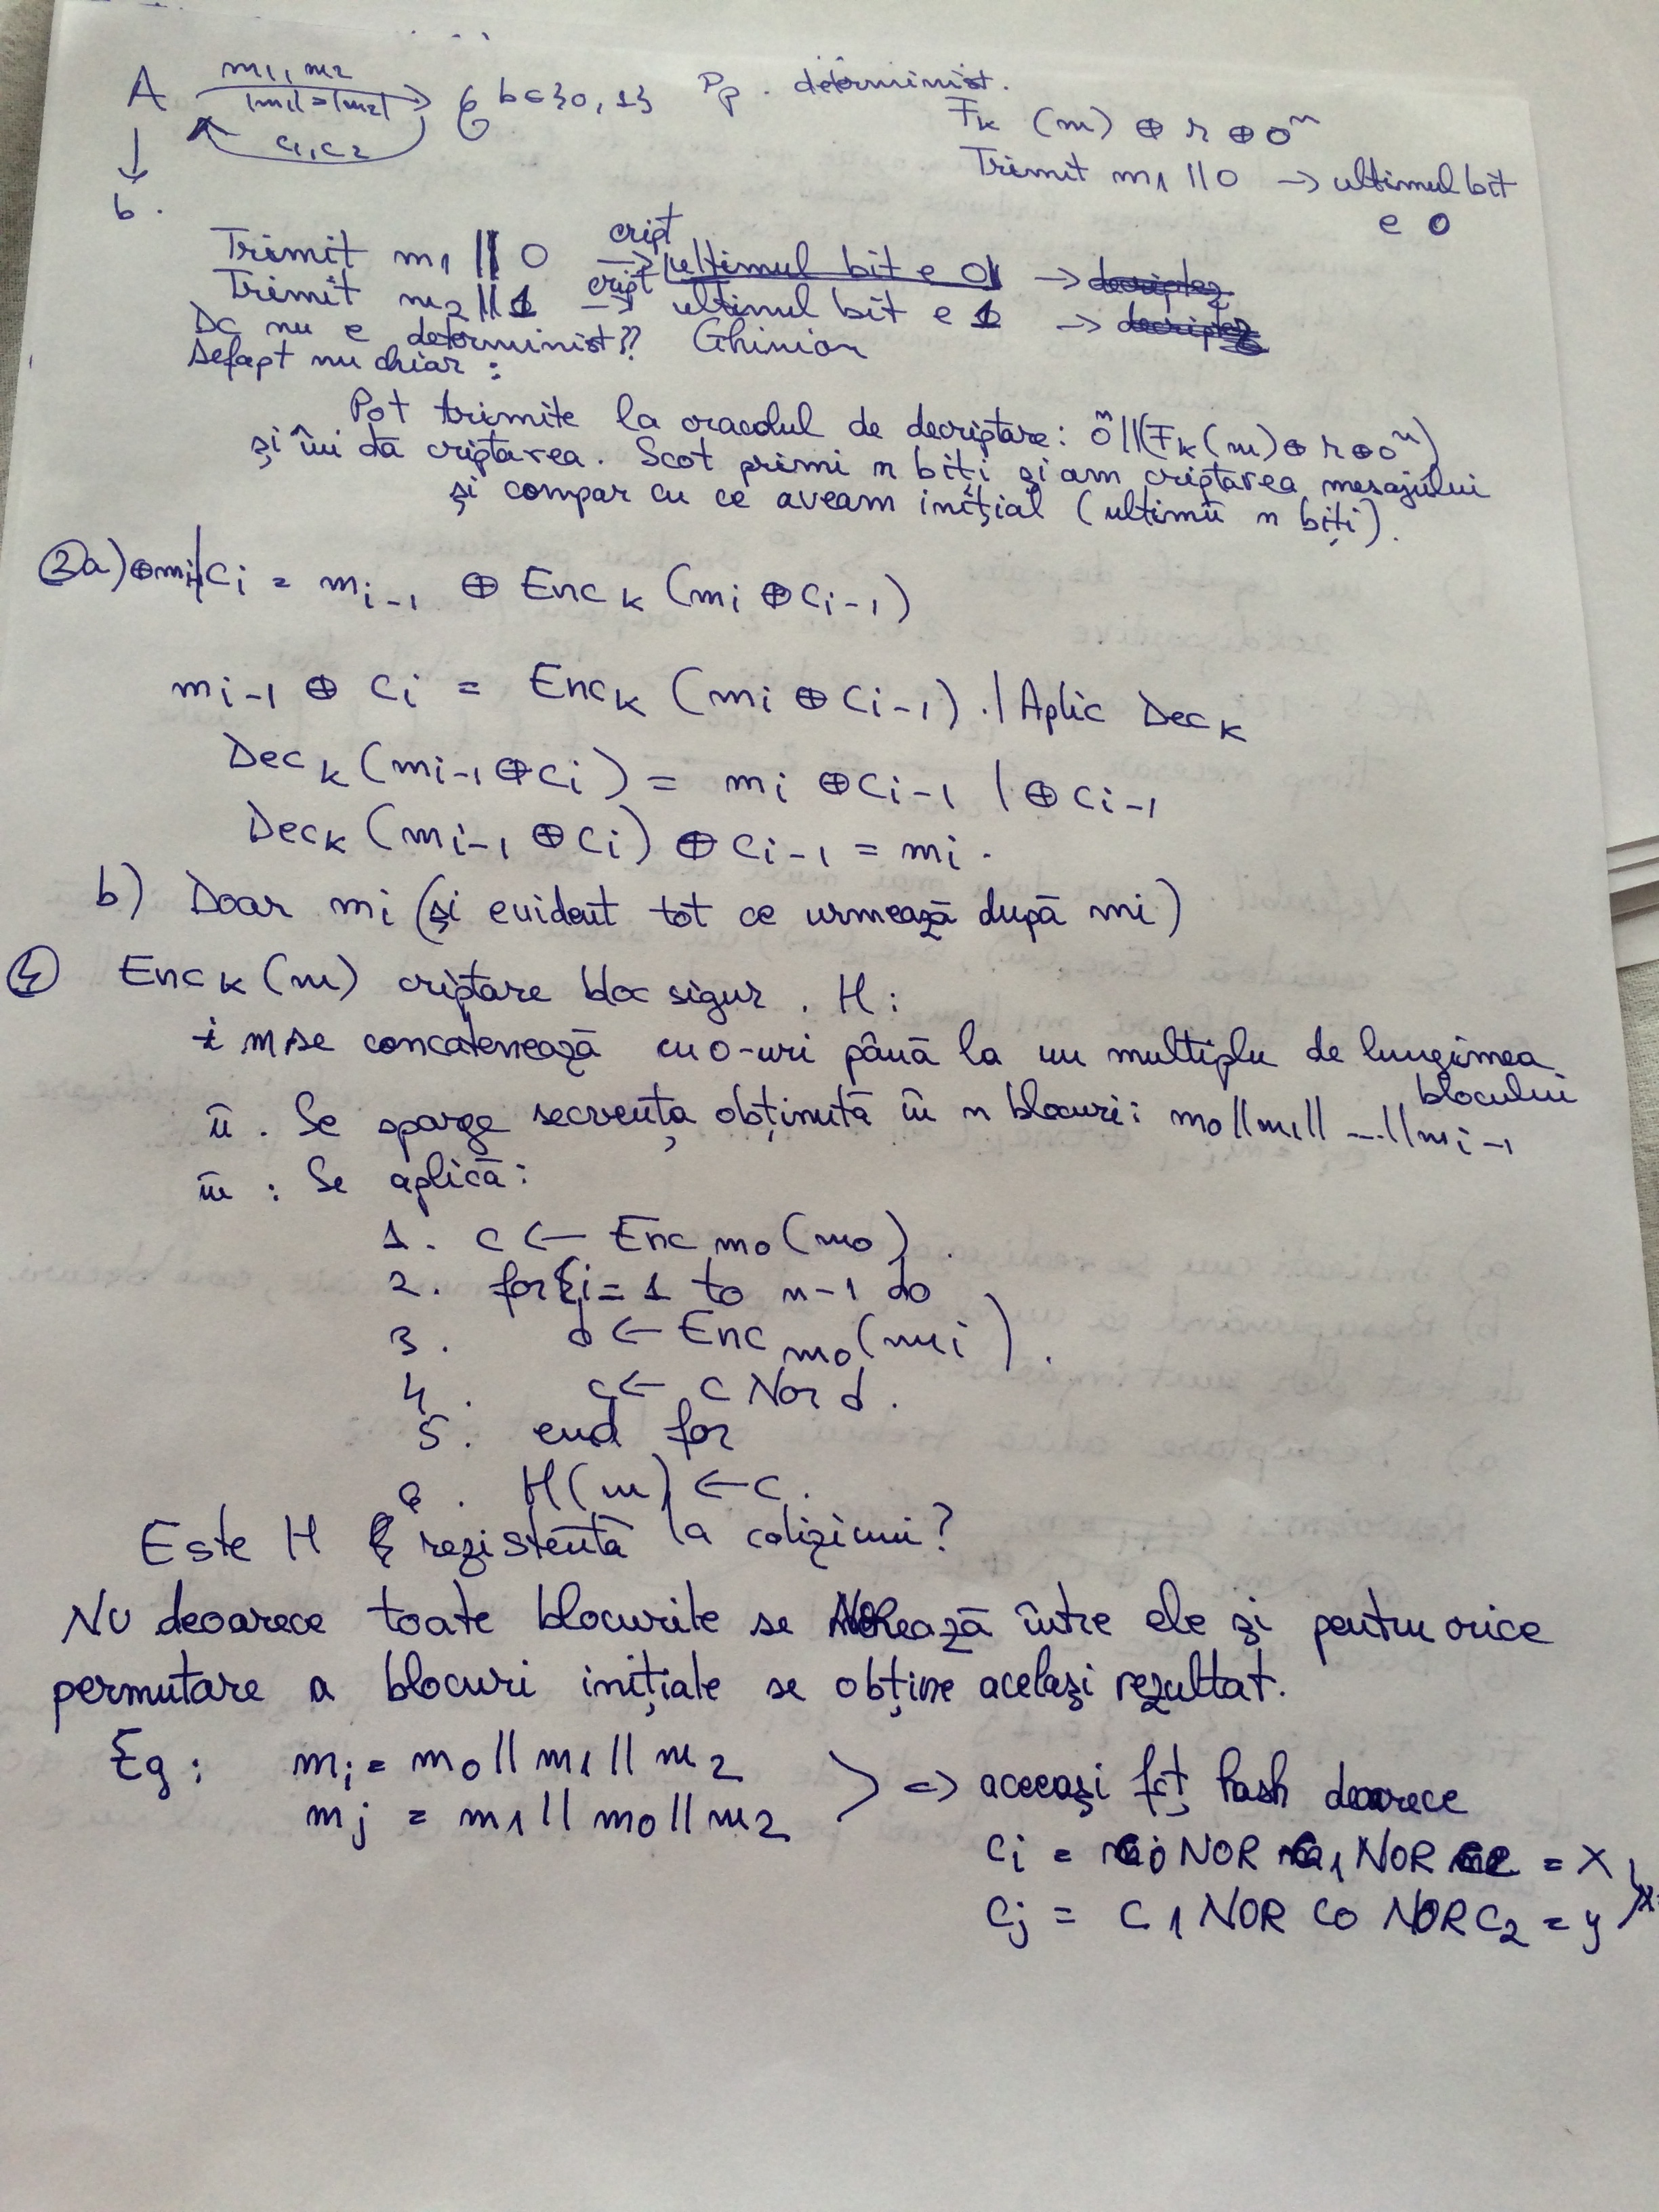 A m1, m2 C b∈{0,1} Pp. determinist.
|m1|=|m2|
c1, c2
b.
Fk (m) ⊕ r ⊕ 0ⁿ
Trimit m1 || 0 → ultimul bit
e 0
Trimit m1 || 0 cript → ultimul bit e 0 → decriptez
Trimit m2 || 1 cript → ultimul bit e 1 → decriptez
Dc nu e determinist?? Ghinion
defapt nu chiar:
Pot trimite la oracolul de decriptare: 0ⁿ||(Fk(m)⊕ r⊕0ⁿ)
și îmi dă criptarea. Scot primi n biți și am criptarea mesajului
și compar cu ce aveam inițial (ultimii n biți).
③a) ⊕mi-1| ci = mi-1 ⊕ Enck (mi ⊕ ci-1)
mi-1 ⊕ ci = Enck (mi ⊕ ci-1) . | Aplic Deck
Deck (mi-1 ⊕ ci) = mi ⊕ ci-1 | ⊕ ci-1
Deck (mi-1 ⊕ ci) ⊕ ci-1 = mi .
b) Doar mi (și evident tot ce urmează după mi)
④ Enck (m) criptare bloc sigur . H :
i m se concatenează cu 0-uri până la un multiplu de lungimea
blocului
ii . Se sparge secvența obținută în n blocuri: m0||m1|| ...||mi-1
iii : Se aplică:
1 . c ← Enc m0 (m0) .
2 . for i = 1 to n-1 do
3 . d ← Enc m0 (mi) .
4 . c ← c Nor d .
5 . end for
6 . H(m) ← c .
Este H rezistentă la coliziuni?
NU deoarece toate blocurile se NORează între ele și pentru orice
permutare a blocuri inițiale se obține același rezultat.
Eg : mi = m0 || m1 || m2
mj = m1 || m0 || m2 => aceeași fcț hash deoarece
ci = c0 NOR c1 NOR c2 = x
cj = c1 NOR c0 NOR c2 = y